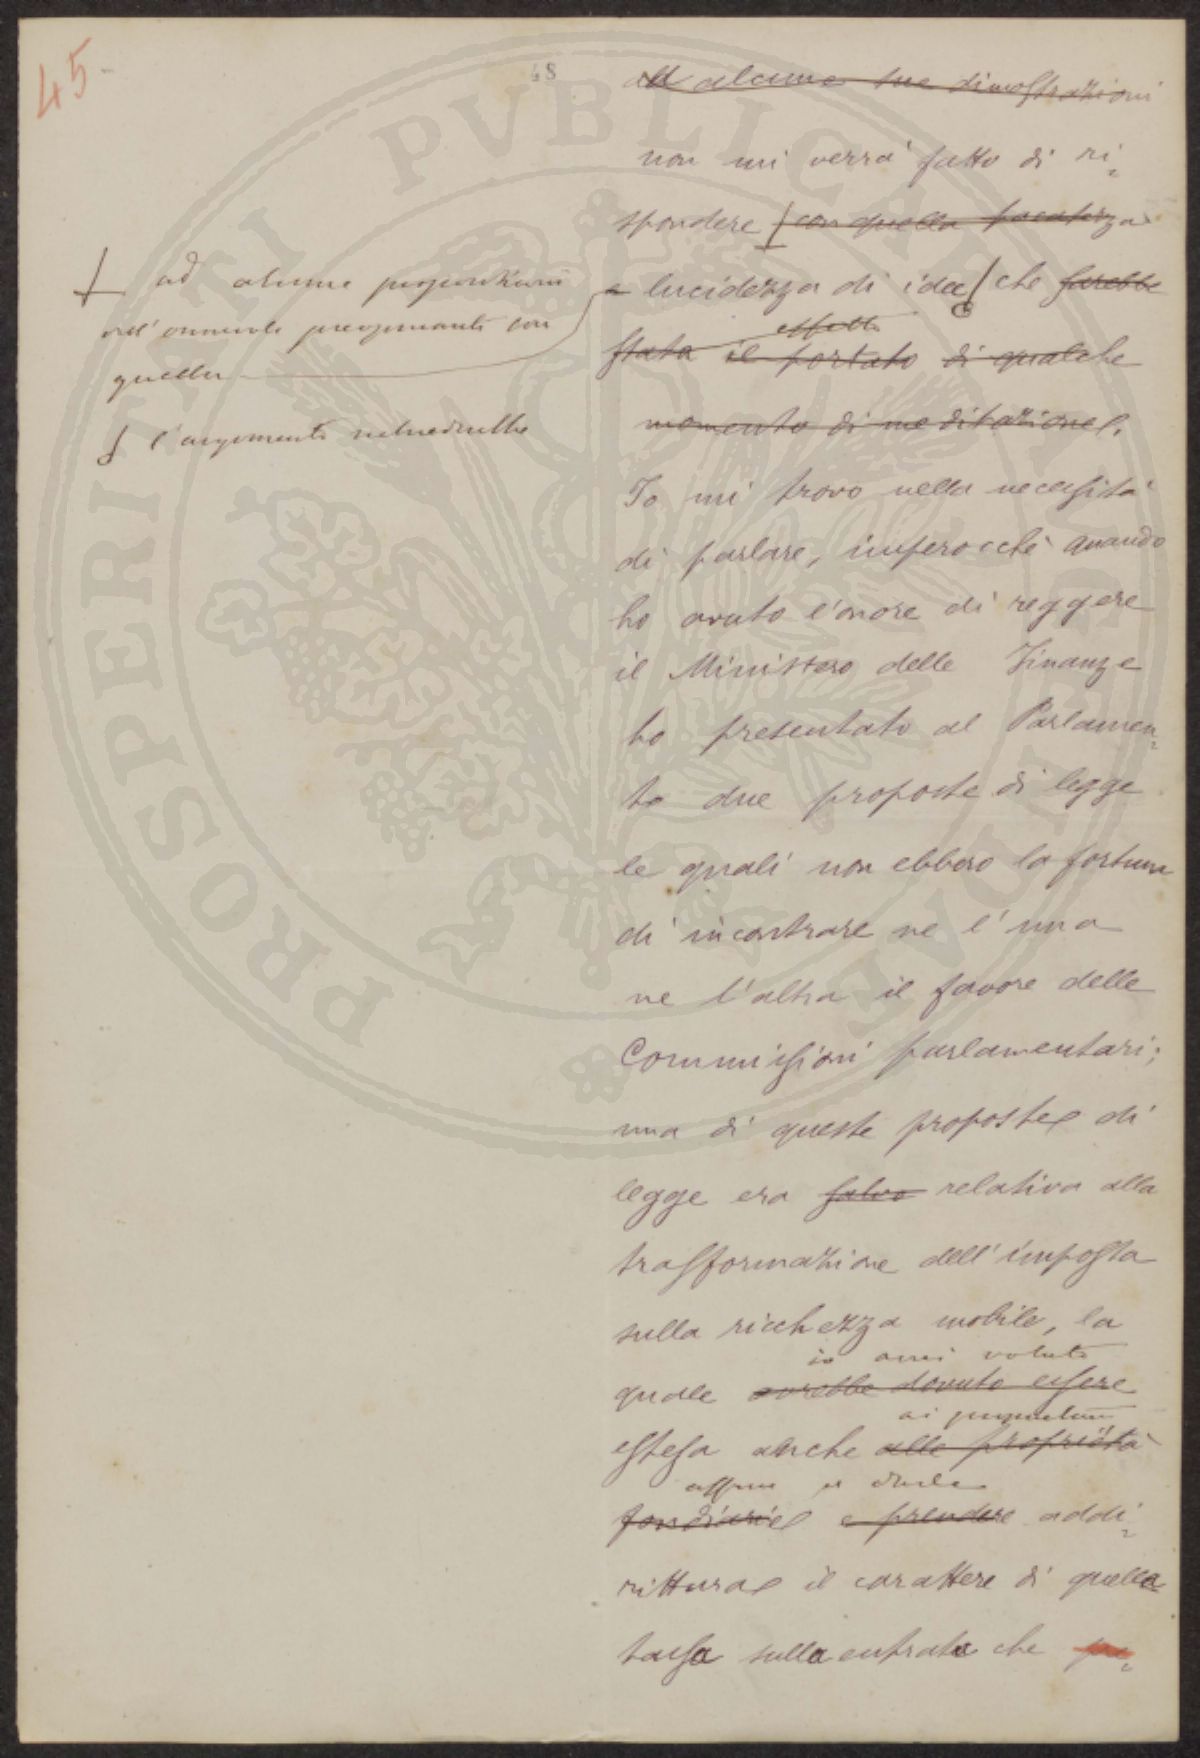 45
48
ad alcune sue dimostrazioni
non mi verrà fatto di ri-
spondere con quella pacatezza
ad alcune proposizioni
dell'onorevole preopinante con
quella
e lucidezza di idee che sarebbe
effetto
stata il portato di qualche
momento di meditazione.
l'argomento
Io mi trovo nella necessità
di parlare, imperocchè quando
ho avuto l'onore di reggere
il Ministero delle Finanze
ho presentato al Parlamen-
to due proposte di legge
le quali non ebbero la fortuna
di incontrare ne l'una
ne l'altra il favore delle
Commissioni parlamentari;
una di queste proposte di
legge era salvo relativa alla
trasformazione dell'imposta
sulla ricchezza mobile, la
io avrei voluto
quale avrebbe dovuto essere
ai
estesa anche alle proprietà
fondiarie e prendere addi-
rittura il carattere di quella
tassa sulla entrata che pre-
PROSPERITATI PVBLICAE